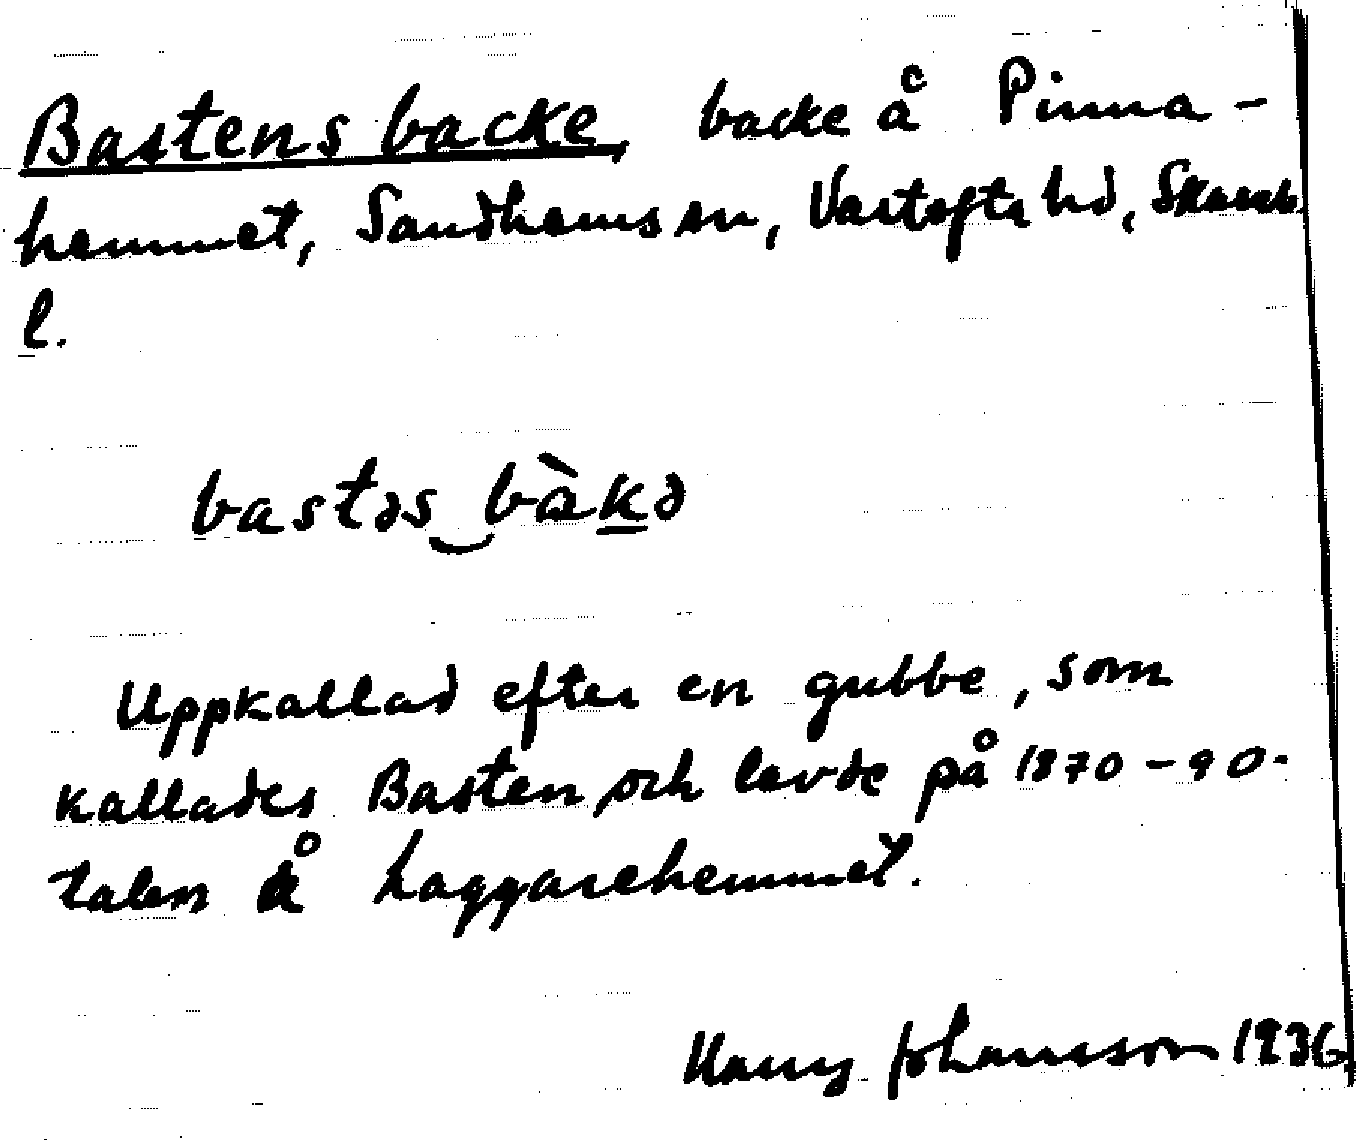 Bastens backe, backe å Pinna-
hemmet, Sandhems sn, Vartofta hd, Skarab.
l.
bastəs‿bàḵə
Uppkallad efter en gubbe, som
kallades Basten och levde på 1870-90-
talen å Laggarehemmet.
Harry Johansson 1936